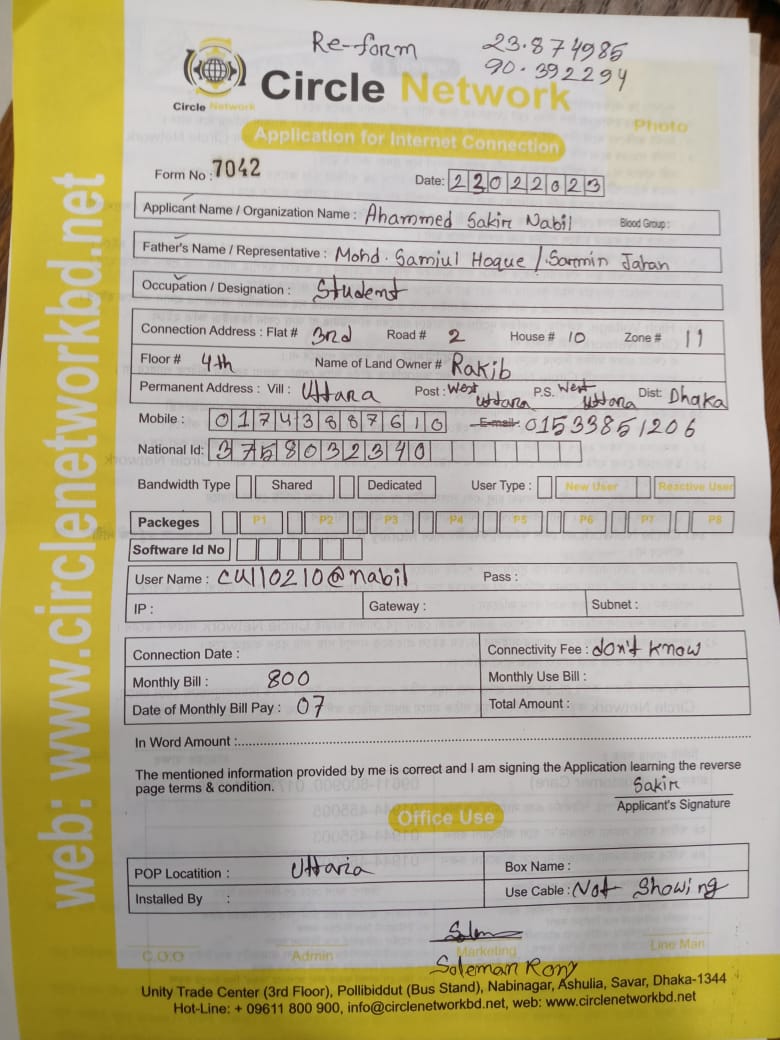 Re-form
23.874985
90.392294
Circle Network
Circle Network
Photo
Application for Internet Connection
Form No : 7042
Date: 23022023
Applicant Name / Organization Name : Ahammed Sakir Nabil Blood Group :
Father's Name / Representative : Mohd. Samiul Hoque / Sarmin Jahan
Occupation / Designation : Student
Connection Address : Flat # 3rd Road # 2 House # 10 Zone # 11
Floor # 4th Name of Land Owner # Rakib
Permanent Address : Vill : Uttara Post : West Uttara P.S. West Uttara Dist: Dhaka
Mobile : 01743887610 E-mail: 01533851206
National Id: 3758032340
Bandwidth Type Shared Dedicated User Type : New User Reactive User
Packeges P1 P2 P3 P4 P5 P6 P7 P8
Software Id No
User Name : cu110210@nabil Pass :
IP : Gateway : Subnet :
Connection Date : Connectivity Fee : don't know
Monthly Bill : 800 Monthly Use Bill :
Date of Monthly Bill Pay : 07 Total Amount :
In Word Amount :
The mentioned information provided by me is correct and I am signing the Application learning the reverse
page terms & condition.
Sakir
Applicant's Signature
Office Use
POP Locatition : Uttaria Box Name :
Installed By : Use Cable : Not Showing
C.O.O Admin Marketing Line Man
Soleman Rony
Unity Trade Center (3rd Floor), Pollibiddut (Bus Stand), Nabinagar, Ashulia, Savar, Dhaka-1344
Hot-Line: + 09611 800 900, info@circlenetworkbd.net, web: www.circlenetworkbd.net
web: www.circlenetworkbd.net